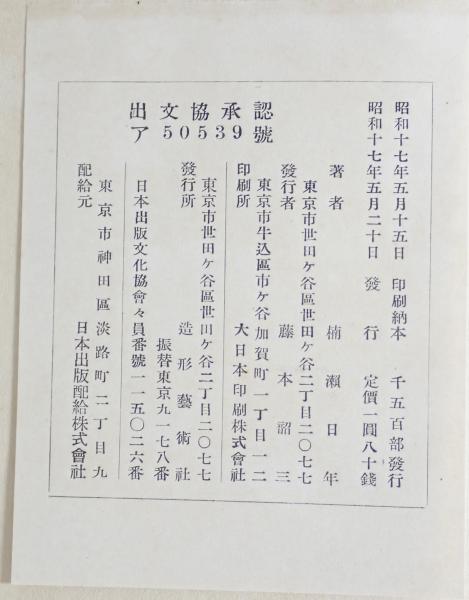 昭和十七年五月十五日　印刷納本　千五百部發行
昭和十七年五月二十日　發行　定價一圓八十錢
著者　楠瀬日年
東京市世田ケ谷區世田ケ谷二丁目二〇七七
發行者　藤本韶三
東京市牛込區市ケ谷加賀町一丁目一二
印刷所　大日本印刷株式會社
出文協承認
ア50539號
東京市世田ケ谷區世田ケ谷二丁目二〇七七
發行所　造形藝術社
振替東京九一七八番
日本出版文化協會々員番號一一五〇二六番
東京市神田區淡路町二丁目九
配給元　日本出版配給株式會社